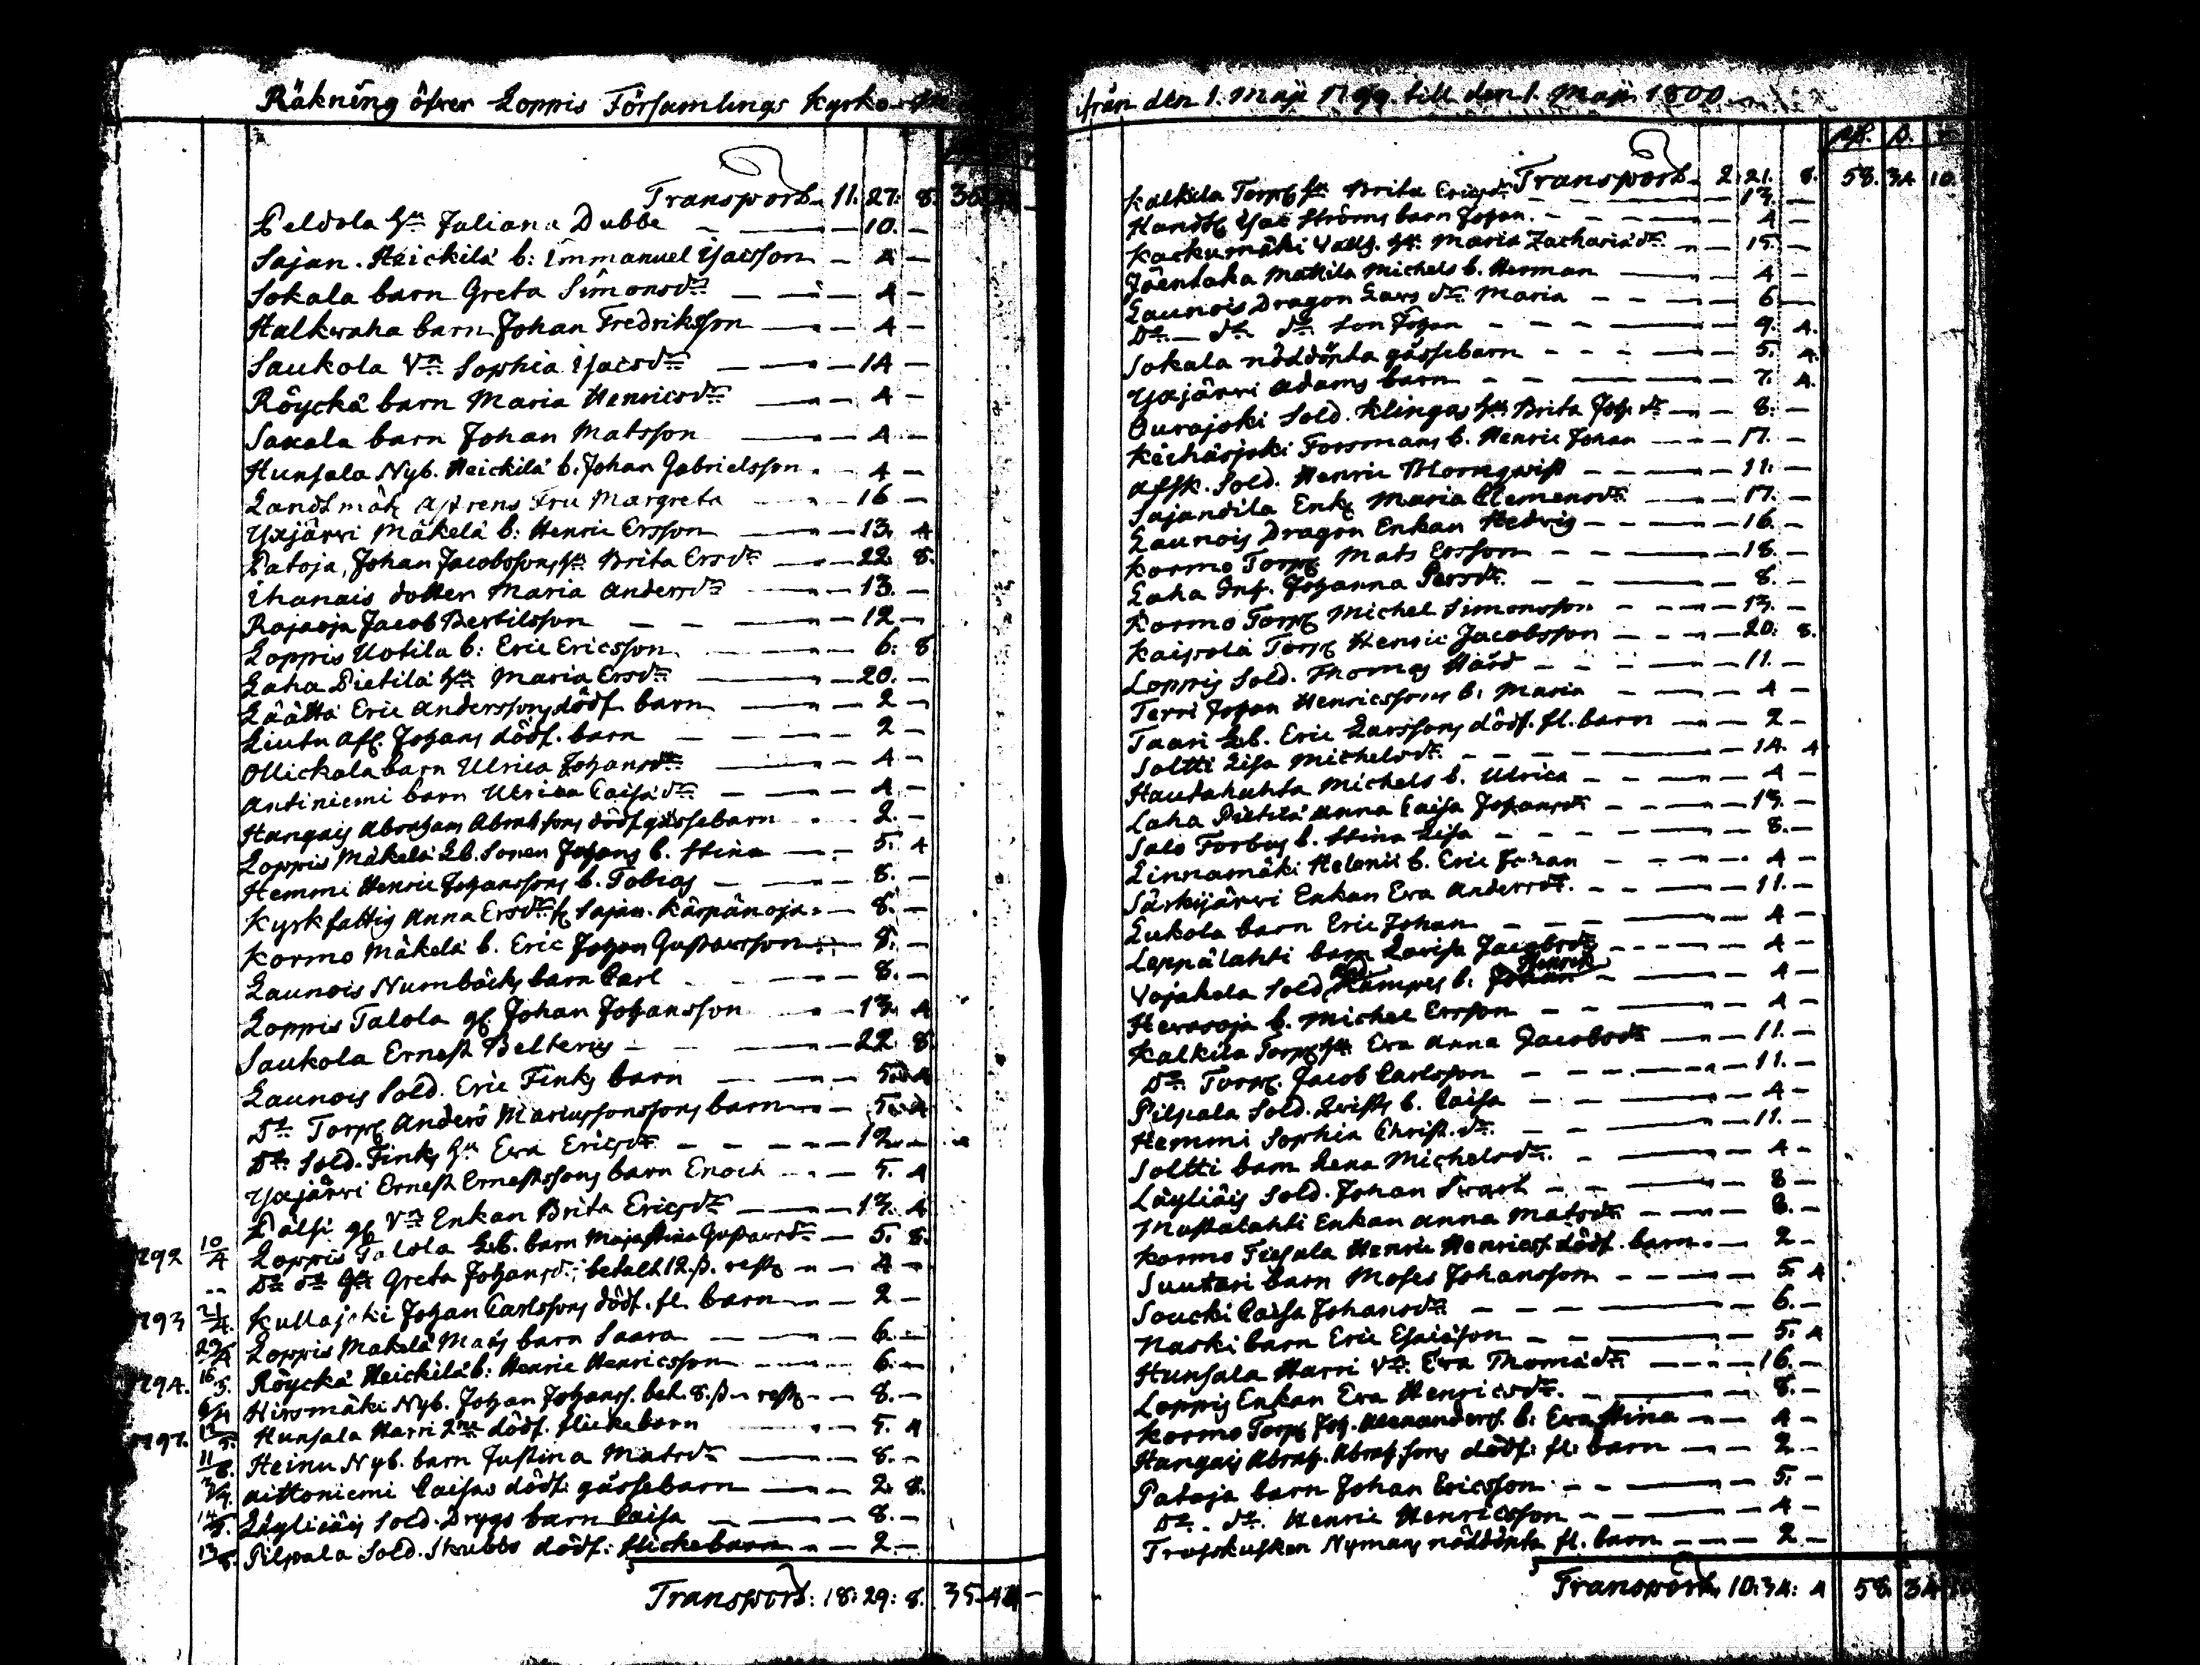 Räkning öfver Loppis Församlings Kyrko
Transport 11. 27. 8. 35.
Peldola Hu Juliana Dubbe - 10. -
Sajan. Heickilä b: Emmanuel Isacsson - 4 -
Sokala barn Greta Simonsdr - 4 -
Halkivaha barn Johan Fredriksson - 4 -
Saukola Vn Sophia Isacsdr - 14
Röyckä barn Maria Henricsdr - 4 -
Saxala barn Johan Matsson - 4 -
Hunsala Nyb. Heickilä b. Johan Gabrielsson - 4 -
Landtmät. Fru Margreta - 16 -
Yxjärvi Mäkelä b: Henric Ersson - 13. 4
Pataja, Johan Jacobssons Hu Brita Ersdr - 22. 8.
Ihanais dotter Maria Andersdr - 13. -
Rajaoja Jacob Bertilsson - 12 -
Loppis Uotila b: Eric Ericsson - 6: 8
Laha Pietilä Hu Maria Ersdr - 20. -
Läättä Eric Anderssons dödf. barn - 2 -
Liutu Johans dödf. barn - 2 -
Ollickala barn Ulrica Johansdr - 4 -
Antiniemi barn Ulrica Caisadr - 4 -
Hangais Abraham Abrahssons dödf. gåssebarn - 2. -
Loppis Mäkelä Lb. Sonen Johans b. Stina - 5. 4
Hemmi Henric Johanssons b. Tobias - 8. -
Kyrkfattig Anna Ersdr fr. Sajan. Kärpänoja - 8. -
Kormo Mäkelä b. Eric Johan Gustavsson - 8. -
Launois Nurnbäcks barn Carl - 8. -
Loppis Talola gl. Johan Johansson - 13. 4
Saukola Ernest Belterus - 22. 8.
Launois Sold. Eric Finks barn - 5. 4
Do Torp. Anders Mariussonssons barn - 5. 4
Do Sold. Finks Hu Eva Ericsdr - 12. -
Yxjärvi Ernest Ernestssons barn Enoch - 5. 4
Pälsi gl. Vn Enkan Brita Ericsdr - 13. 4
1792 10/4 Loppis Talola Lb. barn Majastina Gustavsdr - 5. 8.
Do do Hu Greta Johansdr; betalt 12. ß. rest. - 4 -
1793 21/4 Kullajoki Johan Carlssons dödf. fl. barn - 2 -
29/4 Loppis Mäkelä Mats barn Saara - 6 -
1794. 16/3. Röyckä Heickilä b: Henric Henricsson - 6. -
6/4 Hirsmäki Nyb. Johan Johanss. bet. 8. ß rest. - 8. -
1797. 12/5. Hunsala Harri 2ne dödf. flickebarn - 5. 4
11/8. Heinu Nyb. barn Justina Matsdr - 8. -
3/9. Aittoniemi Caisas dödf. gåssebarn - 2. 8.
14/8. Läyliäis Sold. Drygs barn Caisa - 8. -
13/8. Pilpala Sold. Stubbs dödf: flickebarn - 2. -
Transport: 18: 29: 8. 35. 42 -
från den 1. Maji 1799. till den 1. Maji 1800
Transport 2: 21. 8. 58. 34 10.
Kalkila Torp. Hu Brita Ericsdr - 13. -
Handtl. Isac Ströms barn Johan - 4 -
Kackumäki Vallf. Hu Maria Zachariädr - 15. -
Jöentaka Mattila Michels b. Herman - 4 -
Launois Dragon Lars dr Maria - 6 -
Do - do do Son Johan - 9. 4.
Sokala nöddöpta gåssebarn - 5. 4
Yxjärvi Adams barn - 7. 4.
Ourajoki Sold. Klingas Hu Brita Joh. dr - 8. -
Kächäsjoki Forsmans b. Henric Johan - 17. -
Afsk. Sold. Henric Thornqvist - 11. -
Sajandila Enk. Maria Clemensdr - 17. -
Launois Dragon Enkan Hedvig - 16. -
Kormo Torp. Mats Ersson - 18. -
Laha Inh. Johanna Persdr - 8. -
Kormo Torp. Michel Simonsson - 13. -
Kaipola Torp. Henric Jacobsson - 20. 8.
Loppis Sold. Thomas Hård - 11. -
Terri Johan Henricssons b. Maria - 4 -
Taari Lb. Eric Larssons dödf. fl. barn - 2 -
Soltti Lisa Michelsdr - 14. 4
Hautahuhta Michels b. Ulrica - 4 -
Laha Pietilä Anna Caisa Johansdr - 13. -
Salo Forbus b. Stina Lisa - 8. -
Linnamäki Helenii b. Eric Johan - 4 -
Särkijärvi Enkan Eva Andersdr. - 11. -
Lukola barn Eric Johan - 4 -
Leppälahti barn Lovisa Jacobsdr - 4 -
Henrik
Vojakola Sold. Kämpes b. Johan - 4 -
Hevosoja b. Michel Ersson - 4 -
Kalkila Torp. Hu Eva Anna Jacobsdr - 11. -
Do Torp. Jacob Carlsson - 11. -
Pilpala Sold. Qvists b. Caisa - 4 -
Hemmi Sophia Christ. dr. - 11. -
Soltti barn Lena Michelsdr. - 4 -
Läyliäis Sold. Johan Svart - 8 -
Mustalahti Enkan Anna Matsdr - 8. -
Kormo Tiefsala Henric Henricss. dödf. barn - 2 -
Suutari barn Moses Johansson - 5. 4
Soucki Caisa Johansdr - 6. -
Naski barn Eric Esaiason - 5. 4
Hunsala Harri Vn Eva Thomädr - 16. -
Loppis Enkan Eva Henricsdr. - 8. -
Kormo Torp. Joh. Alexanders. b: Eva Stina - 4 -
Hangais Abrah. Abrah.sons dödf: fl: barn - 2 -
Pataja barn Johan Ericsson - 5. -
Do. do. Henric Henricsson - 4 -
Nymans nöddöpta fl. barn - 2 -
Transport 10: 34: 4 58. 34 10